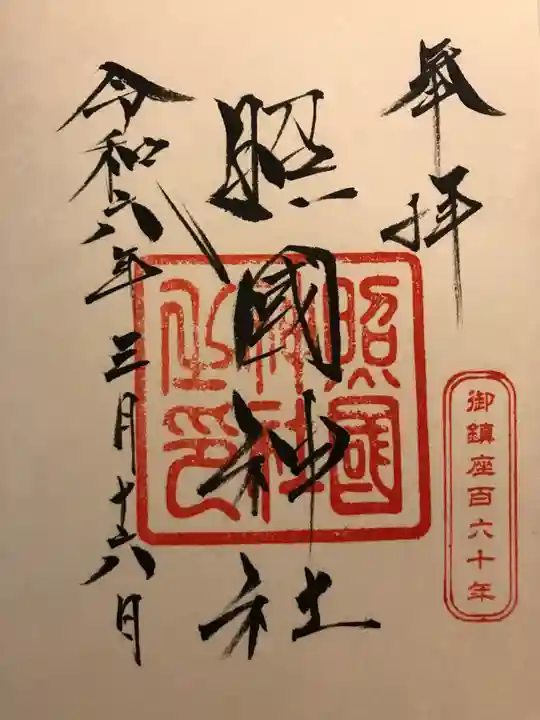 奉拝
照國神社
令和六年三月十六日
照國
神社
之印
御鎮座百六十年